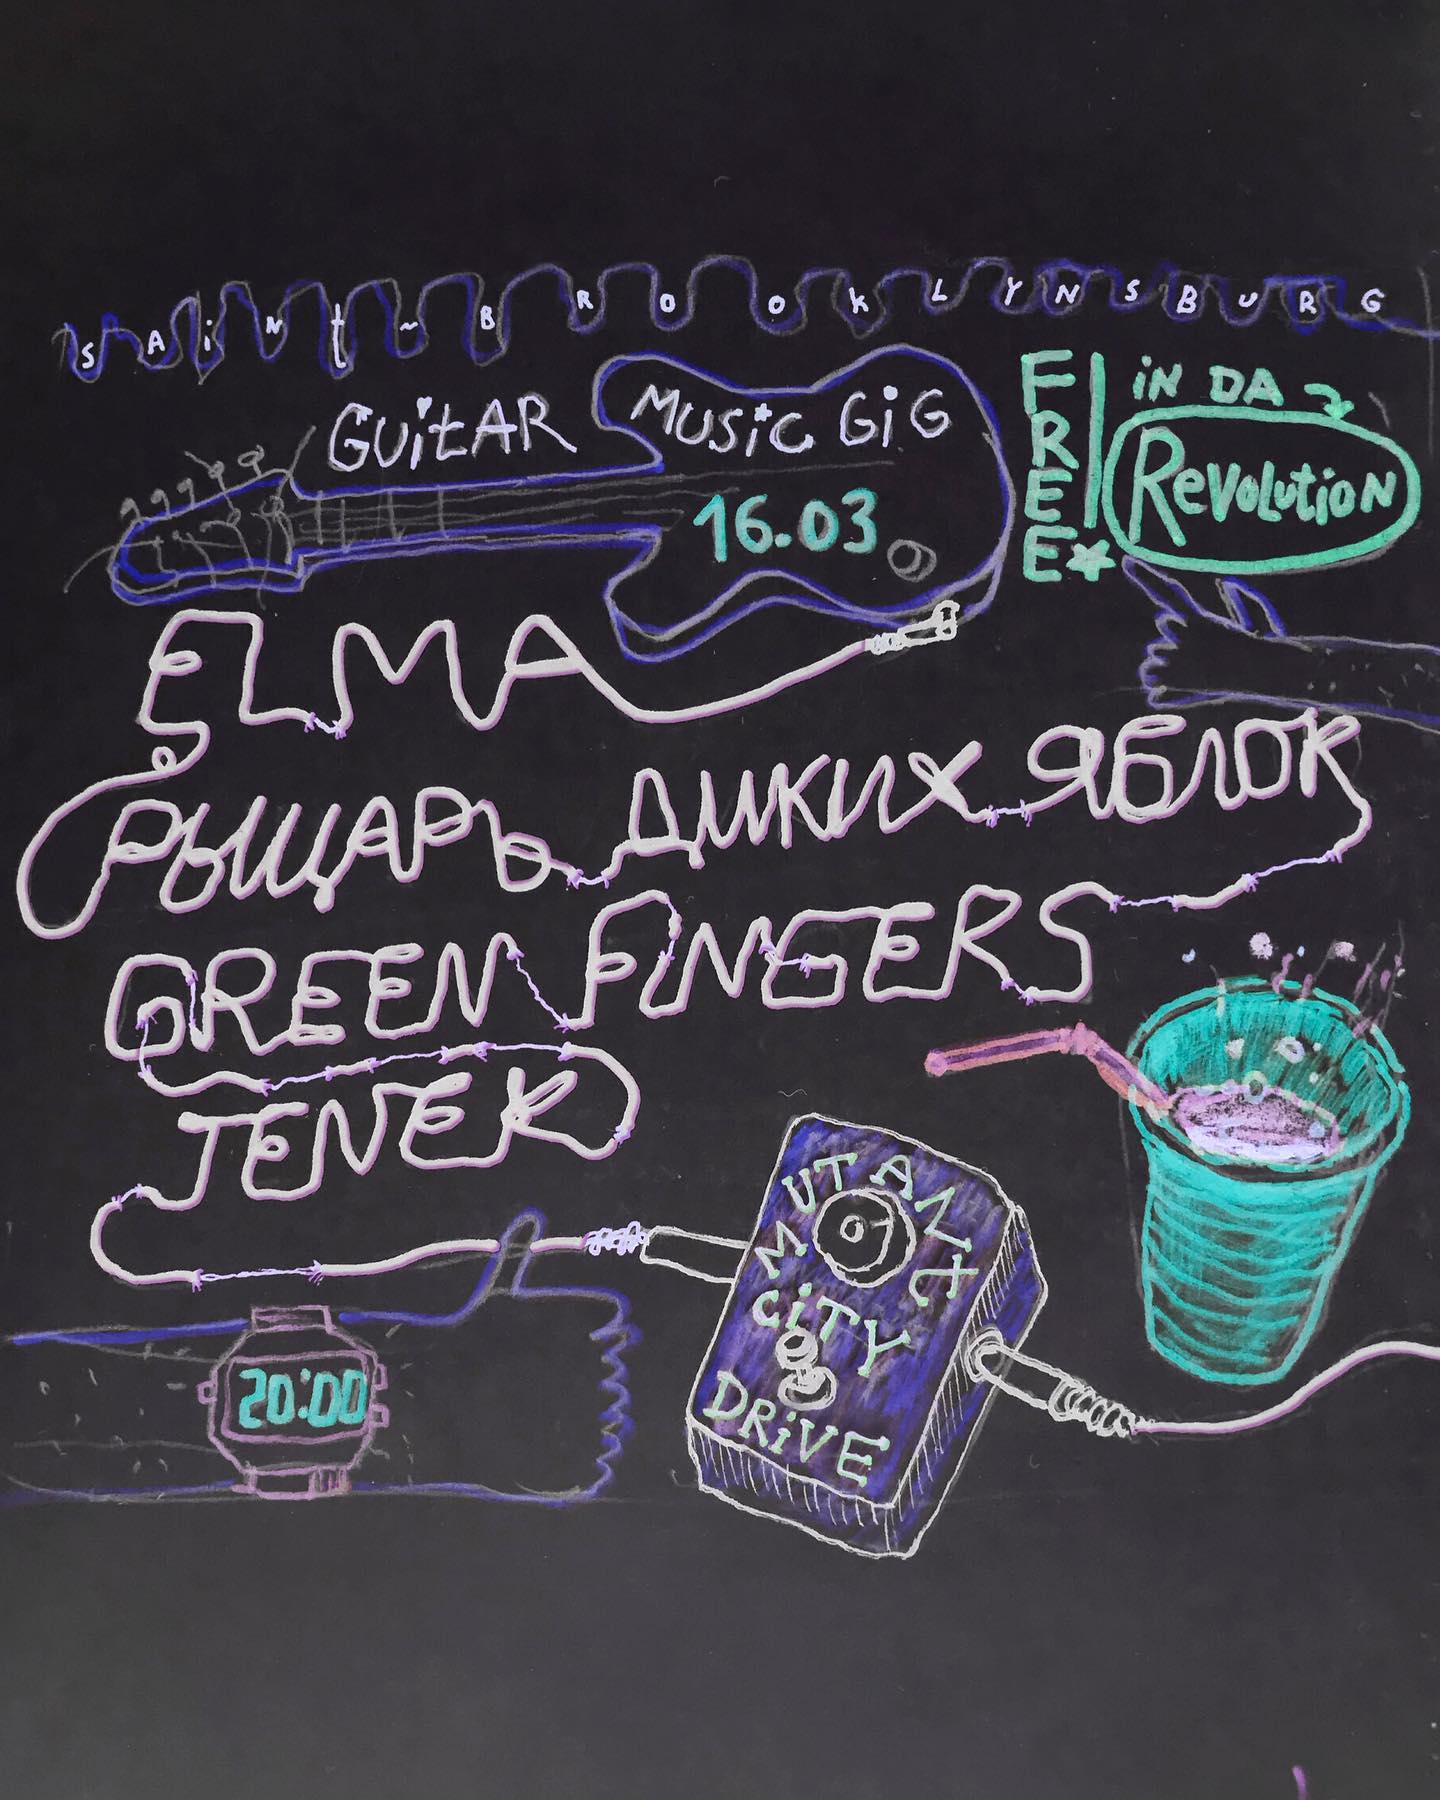 SAiNt~BROOKLYNSBURG
GUitAR MUSiC GiG
16.03
FREE
iN DA
RevolutioN
ELMA
РЫЦАРЬ ДИКИХ ЯБЛОК
GREEN FINGERS
JENEK
MUTANT
CiTY
DRiVE
20:00